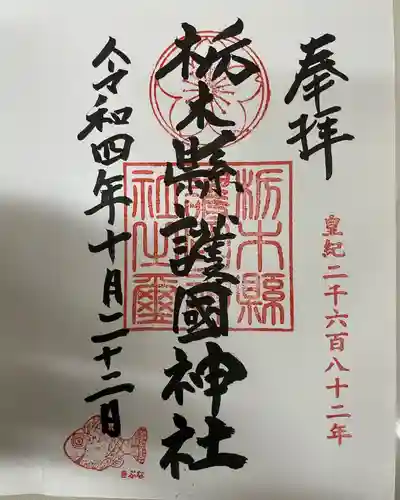 奉拝
皇紀二千六百八十二年
栃木縣護國神社
栃木縣護國神社之璽
令和四年十月二十二日